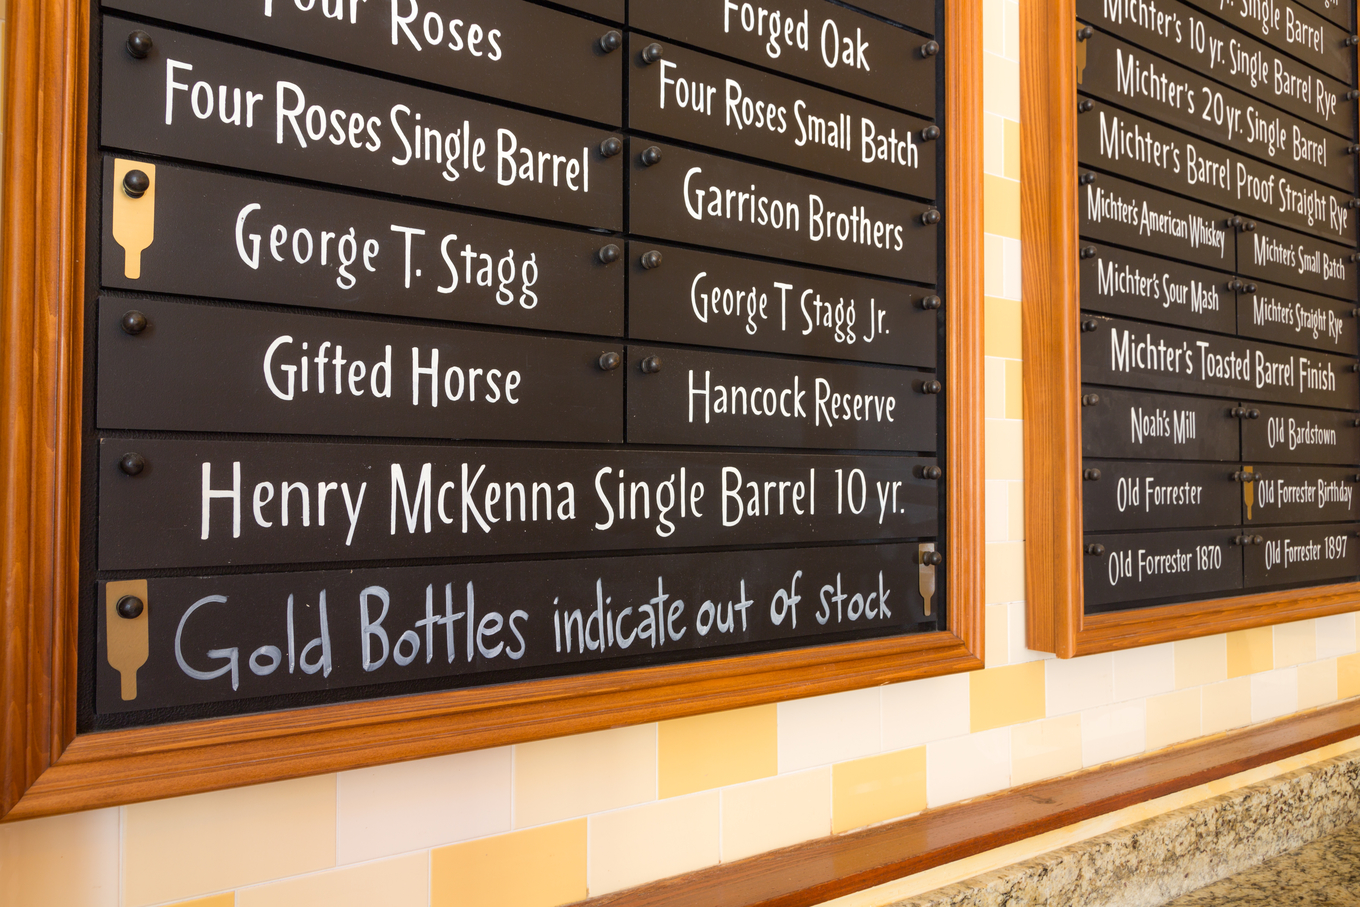 Four Roses
Forged Oak
Four Roses Single Barrel
Four Roses Small Batch
George T. Stagg
Garrison Brothers
Gifted Horse
George T Stagg Jr.
Hancock Reserve
Henry McKenna Single Barrel 10 yr.
Gold Bottles indicate out of stock
yr. Single Barrel
Michter's 10 yr. Single Barrel Rye
Michter's 20 yr. Single Barrel
Michter's Barrel Proof Straight Rye
Michter's American Whiskey
Michter's Small Batch
Michter's Sour Mash
Michter's Straight Rye
Michter's Toasted Barrel Finish
Noah's Mill
Old Bardstown
Old Forrester
Old Forrester Birthday
Old Forrester 1870
Old Forrester 1897